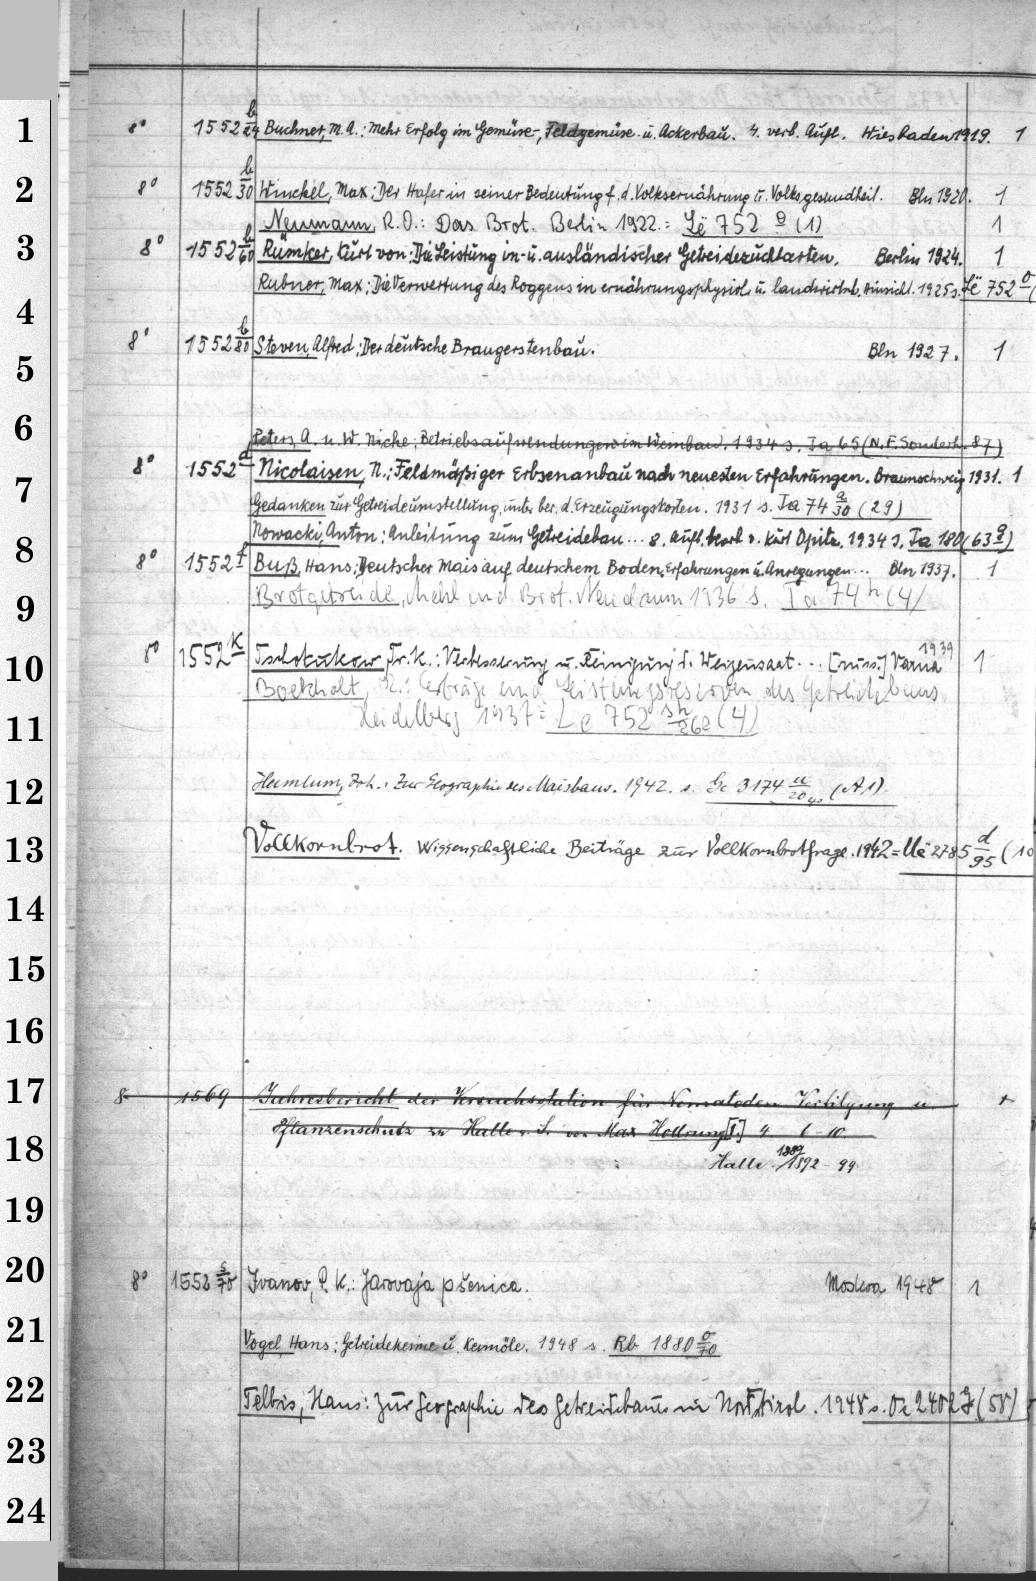 1 8° 1552 b/24 Buchner, M. A.: Mehr Erfolg im Gemüse-, Feldgemüse- u. Ackerbau. 4. verb. Aufl. Wiesbaden 1919. 1
2 8° 1552 b/30 Winckel, Max: Der Hafer in seiner Bedeutung f. d. Volksernährung u. Volksgesundheit. Bln 1920. 1
Neumann, R. O.: Das Brot. Berlin 1922. = Lë 752 g (1) 1
3 8° 1552 b/60 Rümker, Kurt von: Die Leistung in- u. ausländischer Getreidezuchtarten. Berlin 1924. 1
Rubner, Max: Die Verwertung des Roggens in ernährungsphysiol. u. landwirtsch. Hinsicht. 1925 s. Lë 752
4
8° 1552 b/80 Steven, Alfred: Der deutsche Braugerstenbau. Bln 1927. 1
5
6
Peters, A. u. W. Niche: Betriebsaufwendungen im Weinbau. 1934 s. Ta 65 (N. F. Sonderh. 87)
8° 1552 d Nicolaisen, N.: Feldmäßiger Erbsenanbau nach neuesten Erfahrungen. Braunschweig 1931. 1
7
Gedanken zur Getreideumstellung, unt. ber. d. Erzeugungskosten. 1931 s. Ta 74 a/30 (29)
Nowacki, Anton: Anleitung zum Getreidebau... 8. Aufl. bearb. v. Kurt Opitz. 1934 s. Ta 180 (63 a)
8 8° 1552 f Buß, Hans: Deutscher Mais auf deutschem Boden, Erfahrungen u. Anregungen... Bln 1937. 1
9 Brotgetreide, Mehl und Brot. Neudamm 1936 s. Ta 74 h (4)
10 8° 1552 k Tschotukow, Tr. K.: Verbesserung u. Reinigung d. Weizensaat... [russ.] Varna 1939 1
Boekholt, K.: Erträge und Leistungsreserven des Getreidebaus.
11 Heidelberg 1937 = Le 752 (4)
12 Humlum, Joh.: Zur Geographie des Maisbaus. 1942. s. Gc 3174 u/20 (A 1)
13 Vollkornbrot. Wissenschaftliche Beiträge zur Vollkornbrotfrage. 1942 = Uë 2785 d/95 (10
14
15
16
17 8 1569 Jahresbericht der Versuchsstation für Nematoden Vertilgung u.
Pflanzenschutz zu Halle a. S. von Max Hollrung [f.] 4 6-10.
18 Halle. 1889/1892-99
19
20 8° 1552 s/70 Ivanov, P. K.: Jarovaja pšenica. Moskva 1948 1
21 Vogel, Hans: Getreidekeime u. Keimöle. 1948 s. Rb 1880 o/70
22 Telbis, Hans: Zur Geographie des Getreidebaues in Nordtirol. 1948 s. Oz 2402 g (58)
23
24